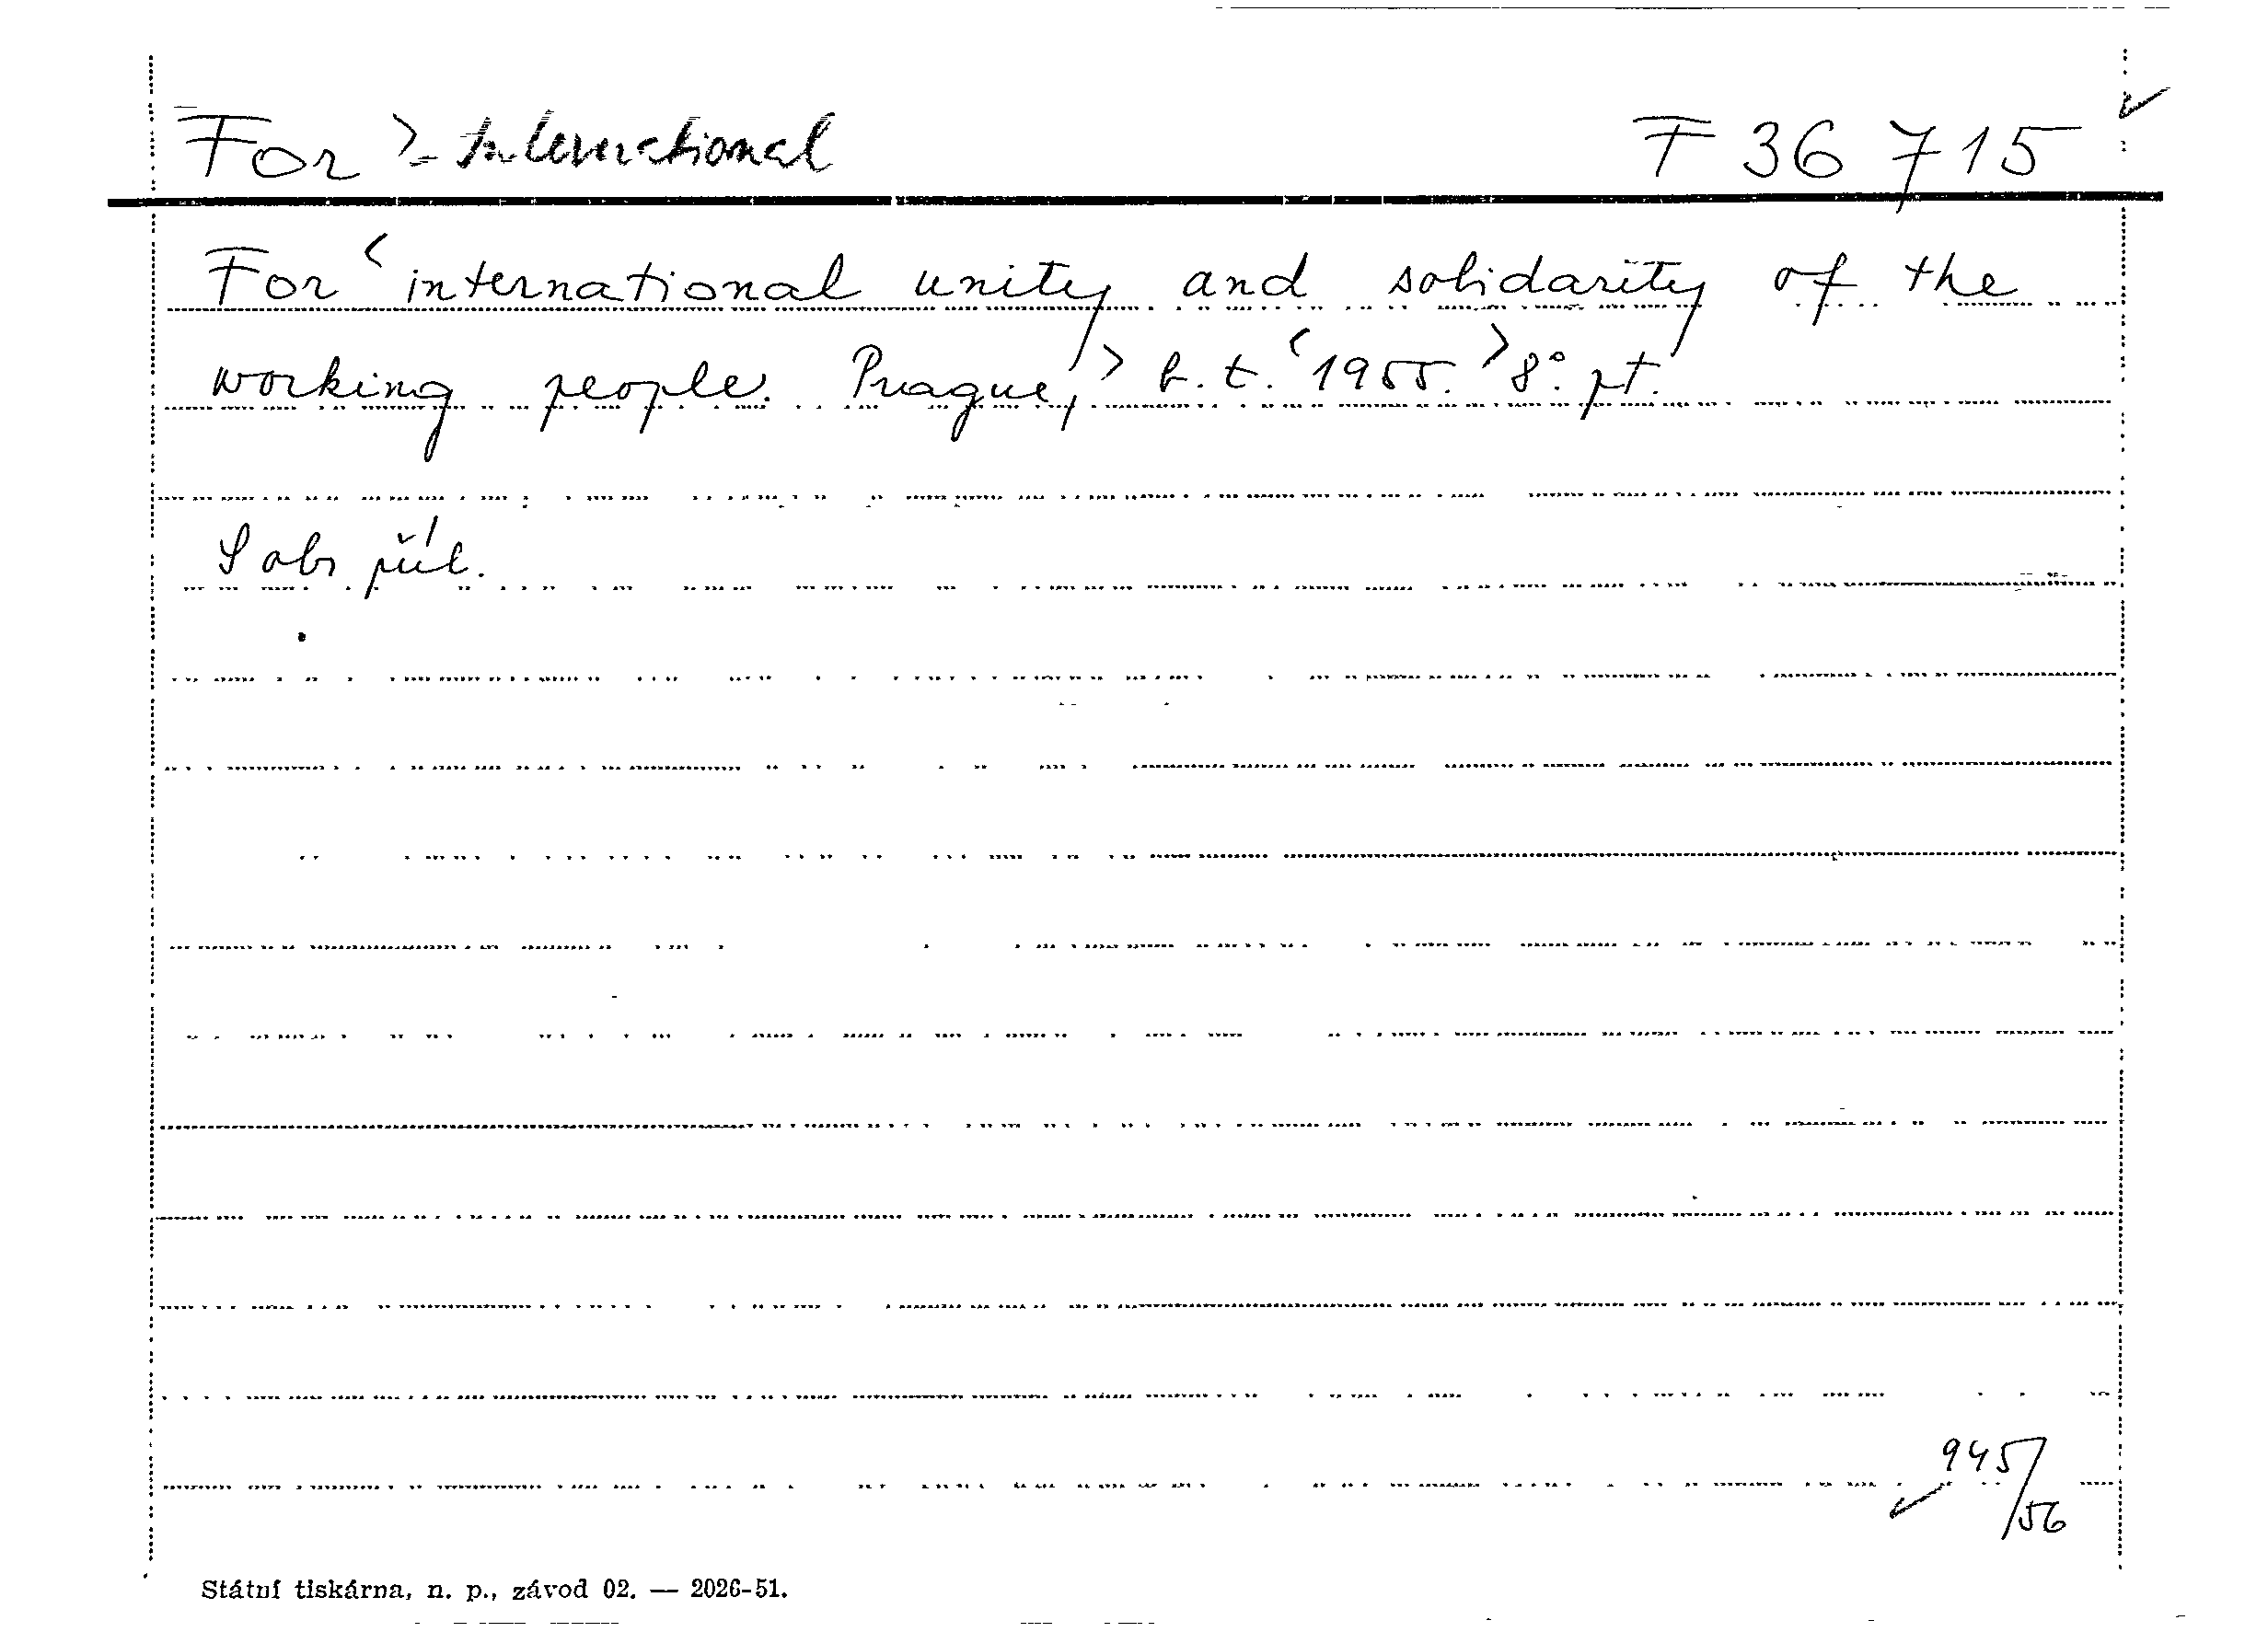 For >- International F 36 715
For < international unity and solidarity of the
working people. Prague, > b. t. < 1955. > 8°. pt.
S obr. příl.
945/56
Státní tiskárna, n. p., závod 02. — 2026-51.